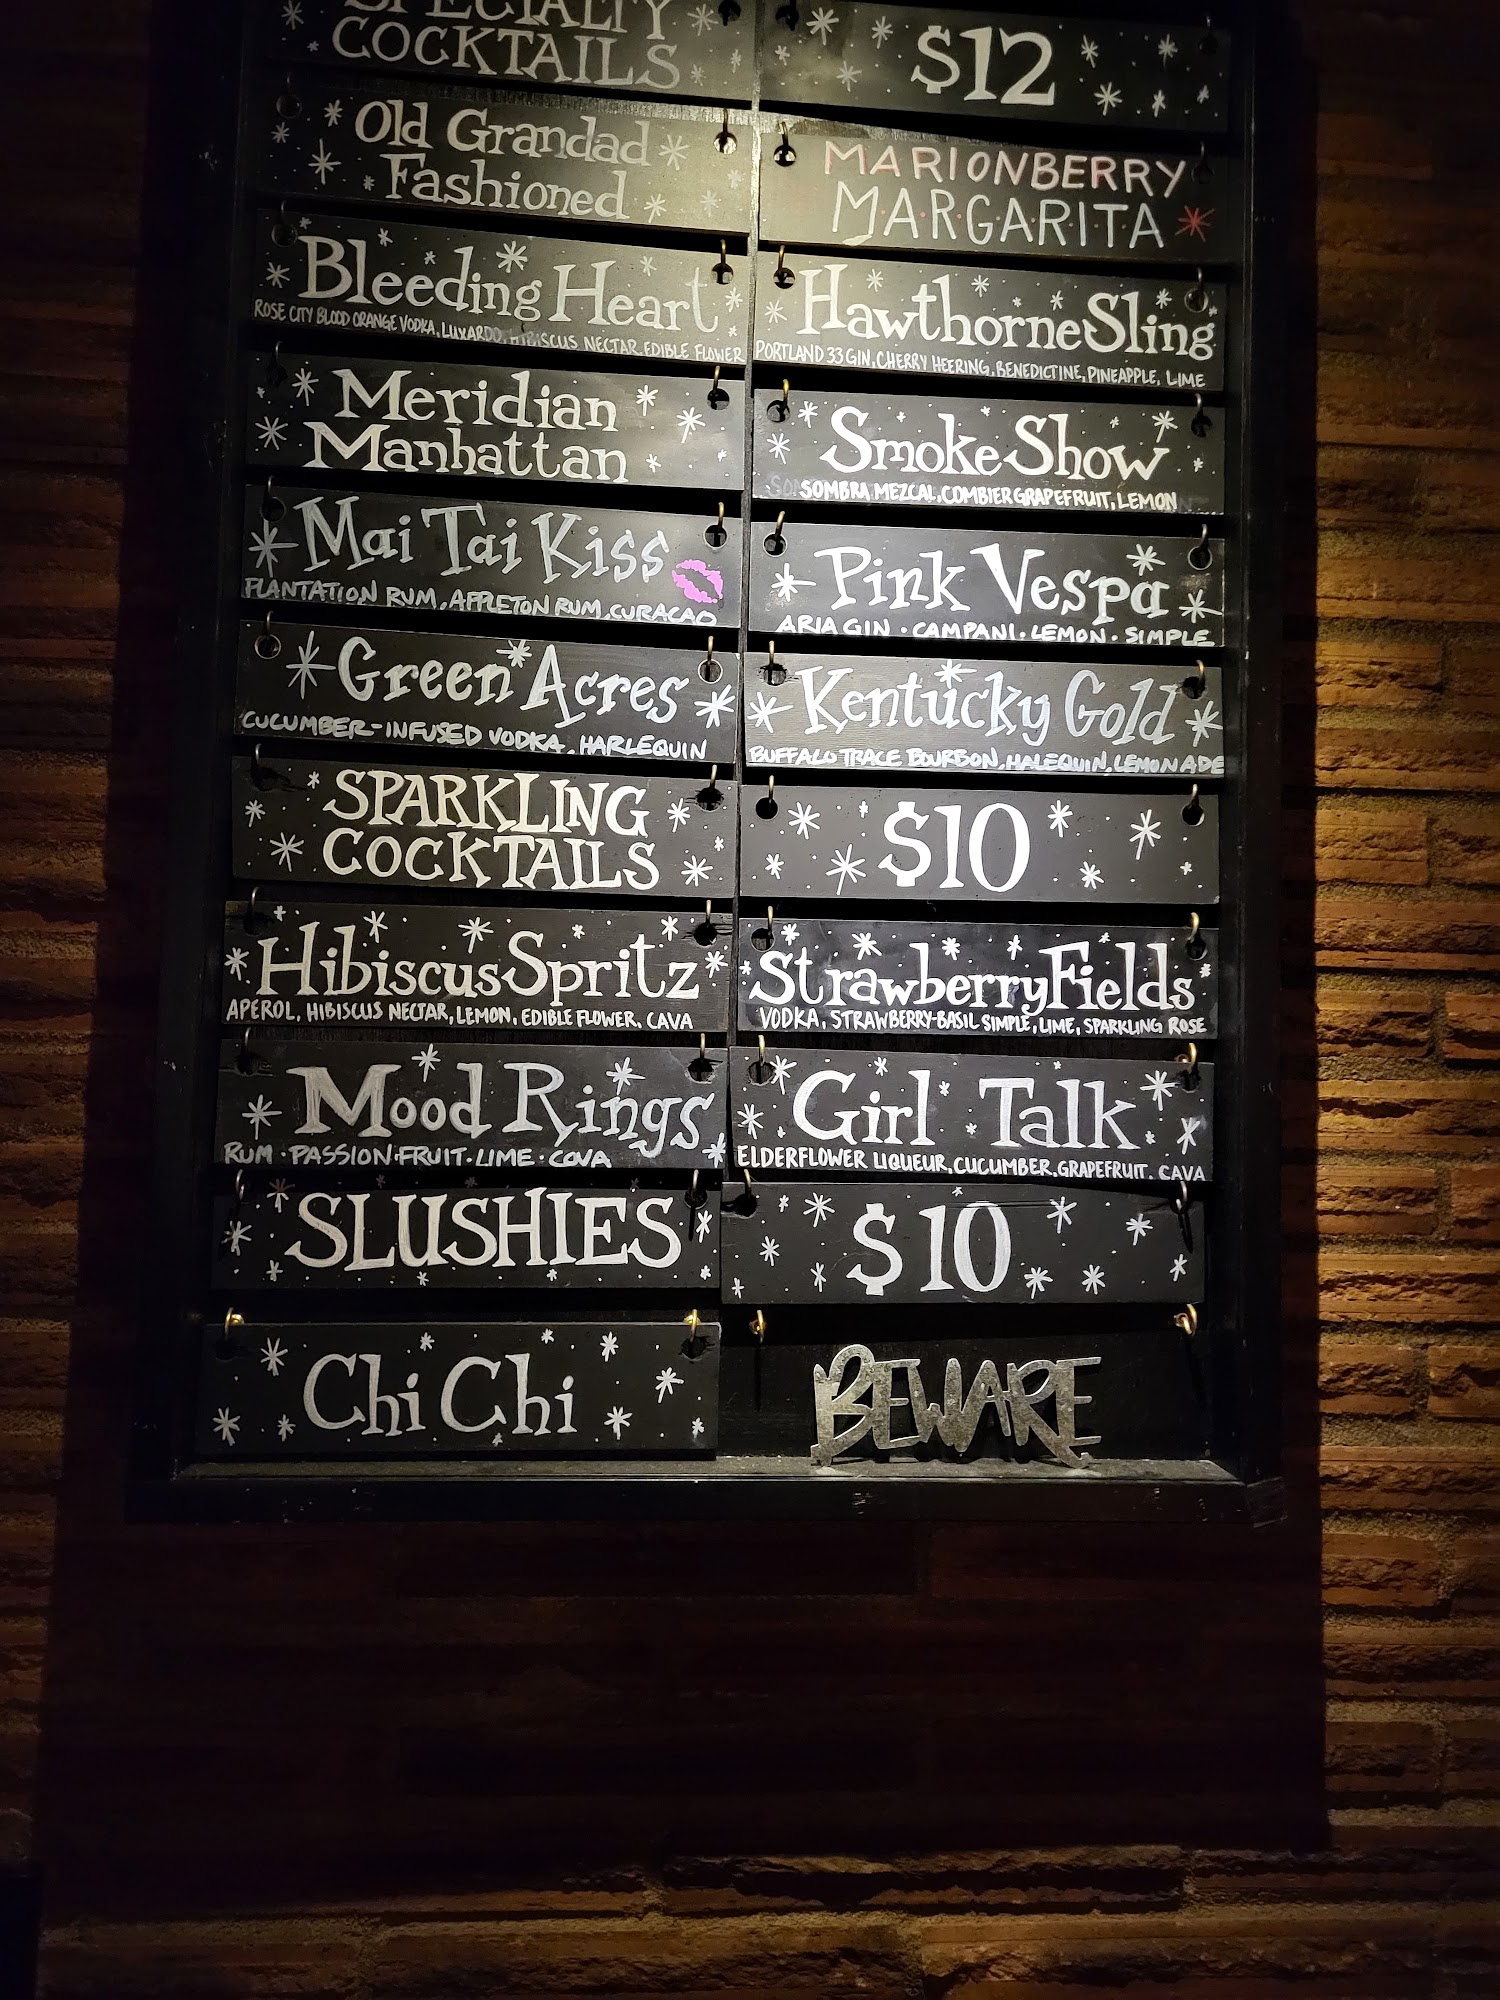 SPECIALTY
COCKTAILS
$12
Old Grandad
Fashioned
MARIONBERRY
MARGARITA
Bleeding Heart
ROSE CITY BLOOD ORANGE VODKA, LUXARDO, HIBISCUS NECTAR, EDIBLE FLOWER
Hawthorne Sling
PORTLAND 33 GIN, CHERRY HEERING, BENEDICTINE, PINEAPPLE, LIME
Meridian
Manhattan
Smoke Show
SOMBRA MEZCAL, COMBIER GRAPEFRUIT, LEMON
Mai Tai Kiss
PLANTATION RUM, APPLETON RUM, CURACAO
Pink Vespa
ARIA GIN · CAMPANI · LEMON · SIMPLE
Green Acres
CUCUMBER-INFUSED VODKA, HARLEQUIN
Kentucky Gold
BUFFALO TRACE BOURBON, HALEQUIN, LEMONADE
SPARKLING
COCKTAILS
$10
Hibiscus Spritz
APEROL, HIBISCUS NECTAR, LEMON, EDIBLE FLOWER, CAVA
Strawberry Fields
VODKA, STRAWBERRY-BASIL SIMPLE, LIME, SPARKLING ROSE
Mood Rings
RUM · PASSION FRUIT · LIME · COVA
Girl Talk
ELDERFLOWER LIQUEUR, CUCUMBER, GRAPEFRUIT, CAVA
SLUSHIES
$10
Chi Chi
BEWARE